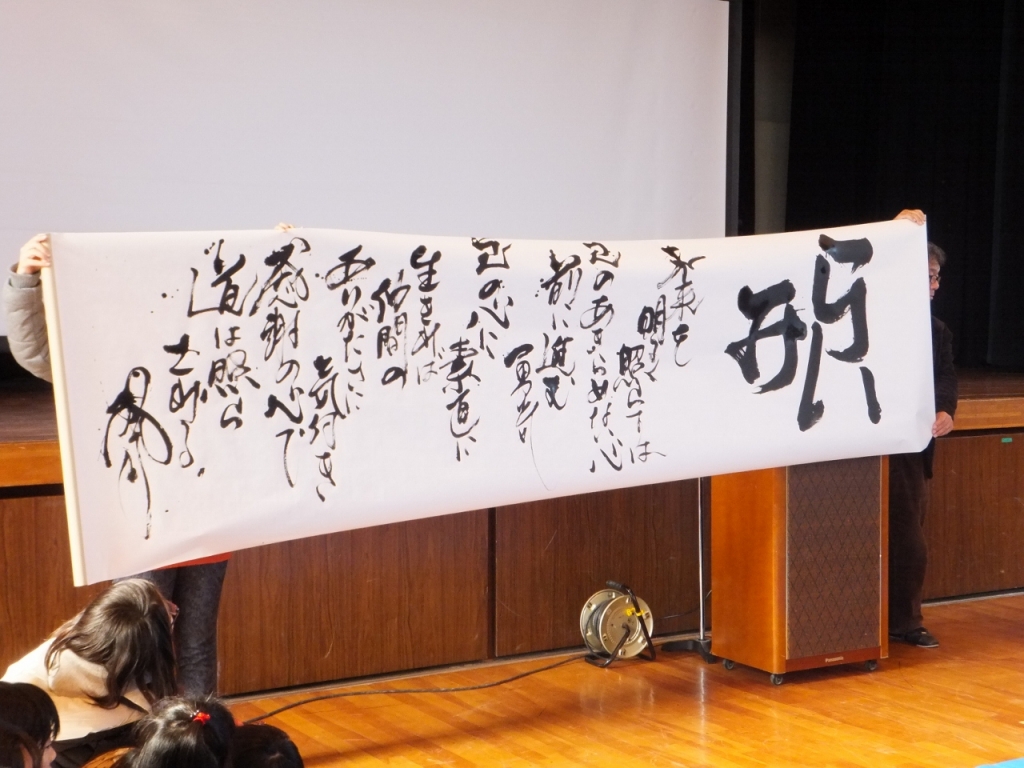 未来を
明るく
照らすは
己のあきらめない心
前に進む
勇気
己の心に
素直に
生きれば
仲間の
ありがたさに
気付き
感謝の心で
道は照ら
される。
Panasonic